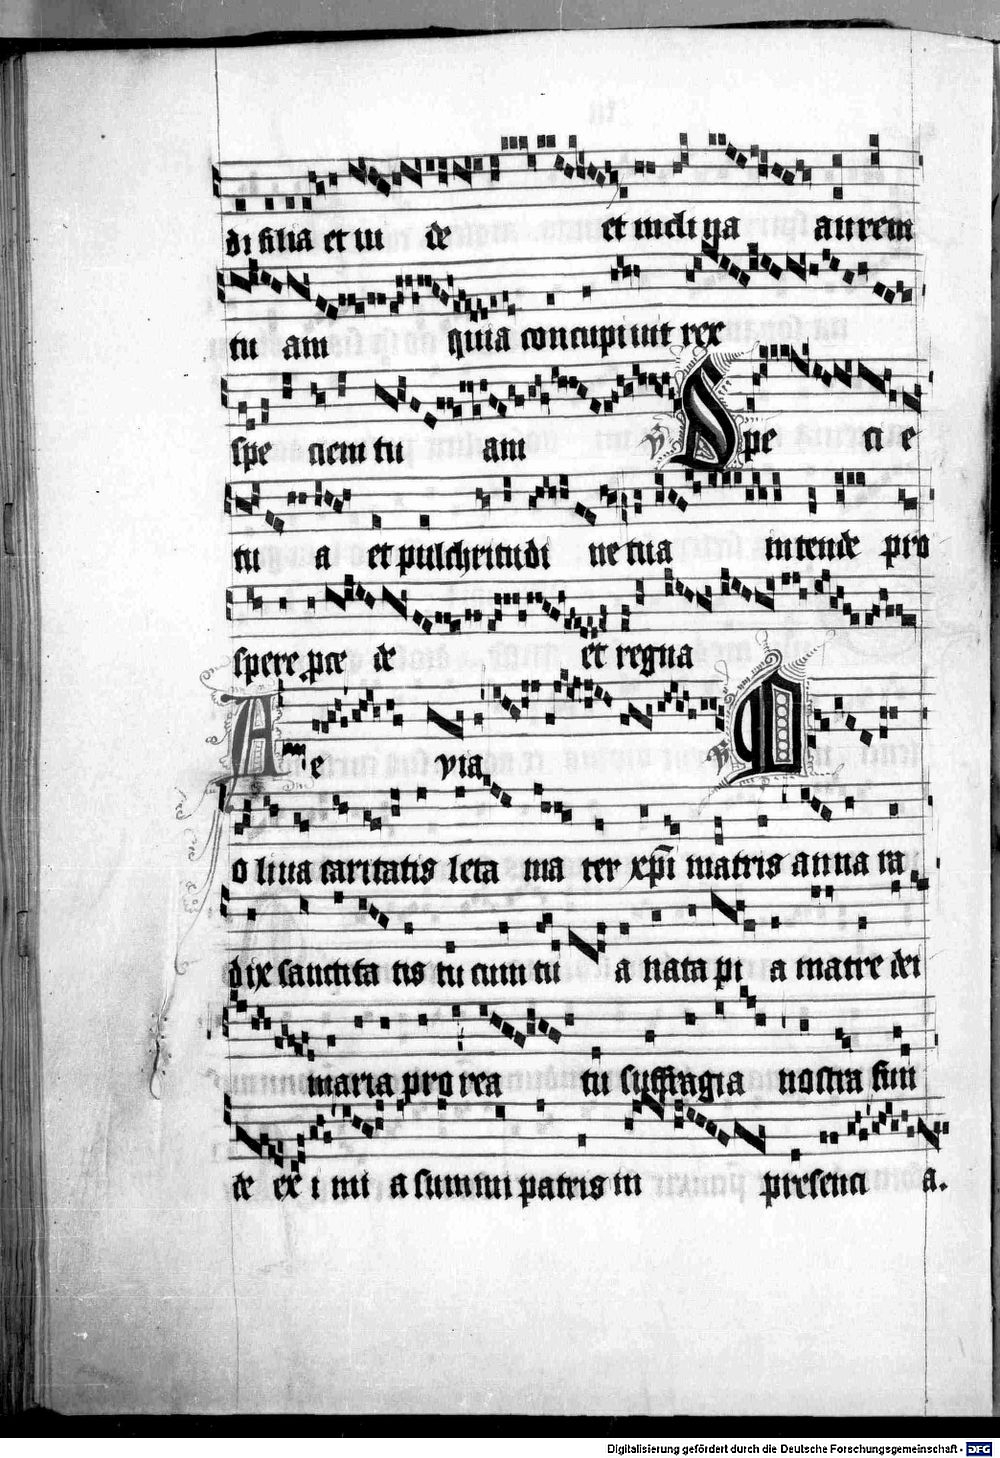 di filia et vi de et incli na aurem
tu am quia concupiuit rex
spe ciem tu am Spe ci e
tu a et pulchritudi ne tua intende pro
spere pce de et regna
A me via O
o liua caritatis leta ma ter xpi matris anna ra
dix sanctita tis tu cum tu a nata pi a matre dei
maria pro rea tu suffragia nostra fun
de ex i mi a summi patris in presenci a.
Digitalisierung gefördert durch die Deutsche Forschungsgemeinschaft - DFG